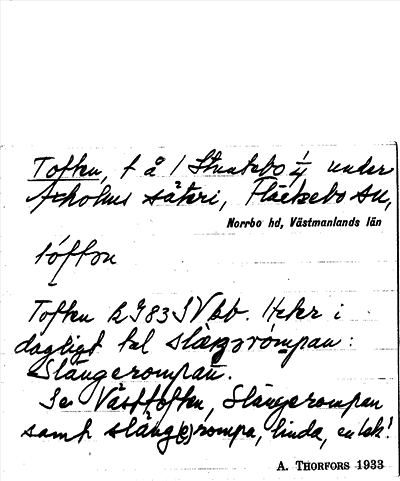 Toften, t å / Stuntebo 1/4 under
Axholms säteri, Fläckebo sn,
Norrbo hd, Västmanlands län
tóffən
Toften LG83SVbb. Heter i
dagligt tal slæŋərómpan:
Slängerompan.
Se Västtoften, Slängerompan
samt släng(e)rompa, linda, enl. !
A. THORFORS 1933